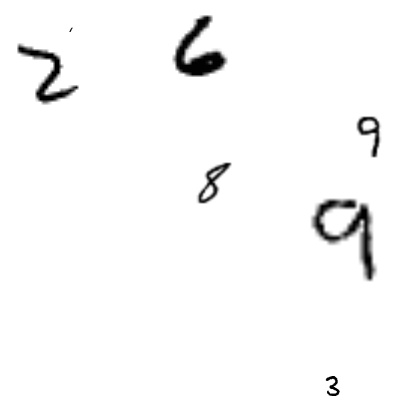 2 6
9
8
9
3